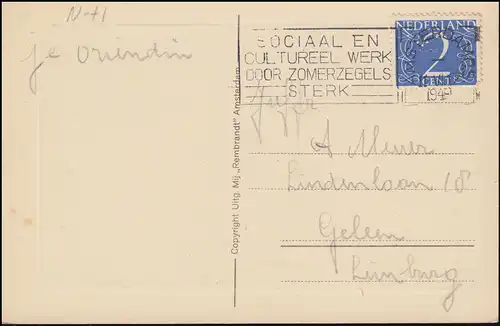 je vriendin
SOCIAAL EN
CULTUREEL WERK
DOOR ZOMERZEGELS
STERK
NEDERLAND
2
CENT
194
Juffr
A Meurer
Lindenlaan 18
Geleen
Limburg
Copyright Uitg. Mij „Rembrandt" Amsterdam